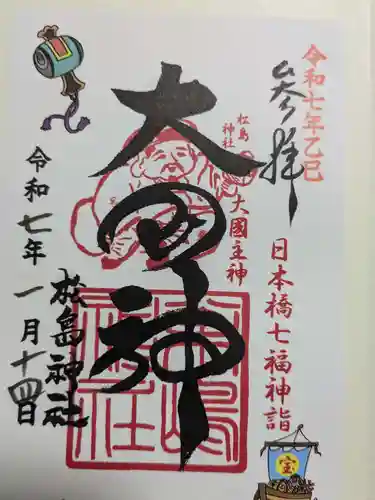 令和七年乙巳
参拝
日本橋七福神詣
松島
神社
大國主神
大国神
松島神社
令和七年一月十四日
松島神社
宝